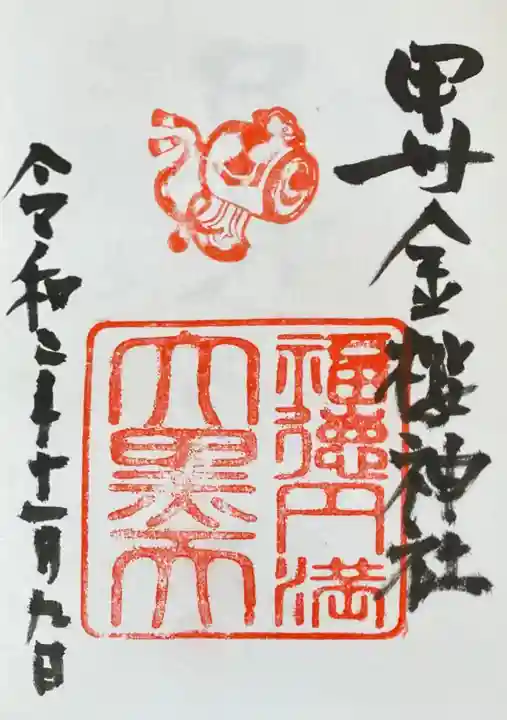 甲州金櫻神社
福徳円満
大黒天
令和二年十一月九日